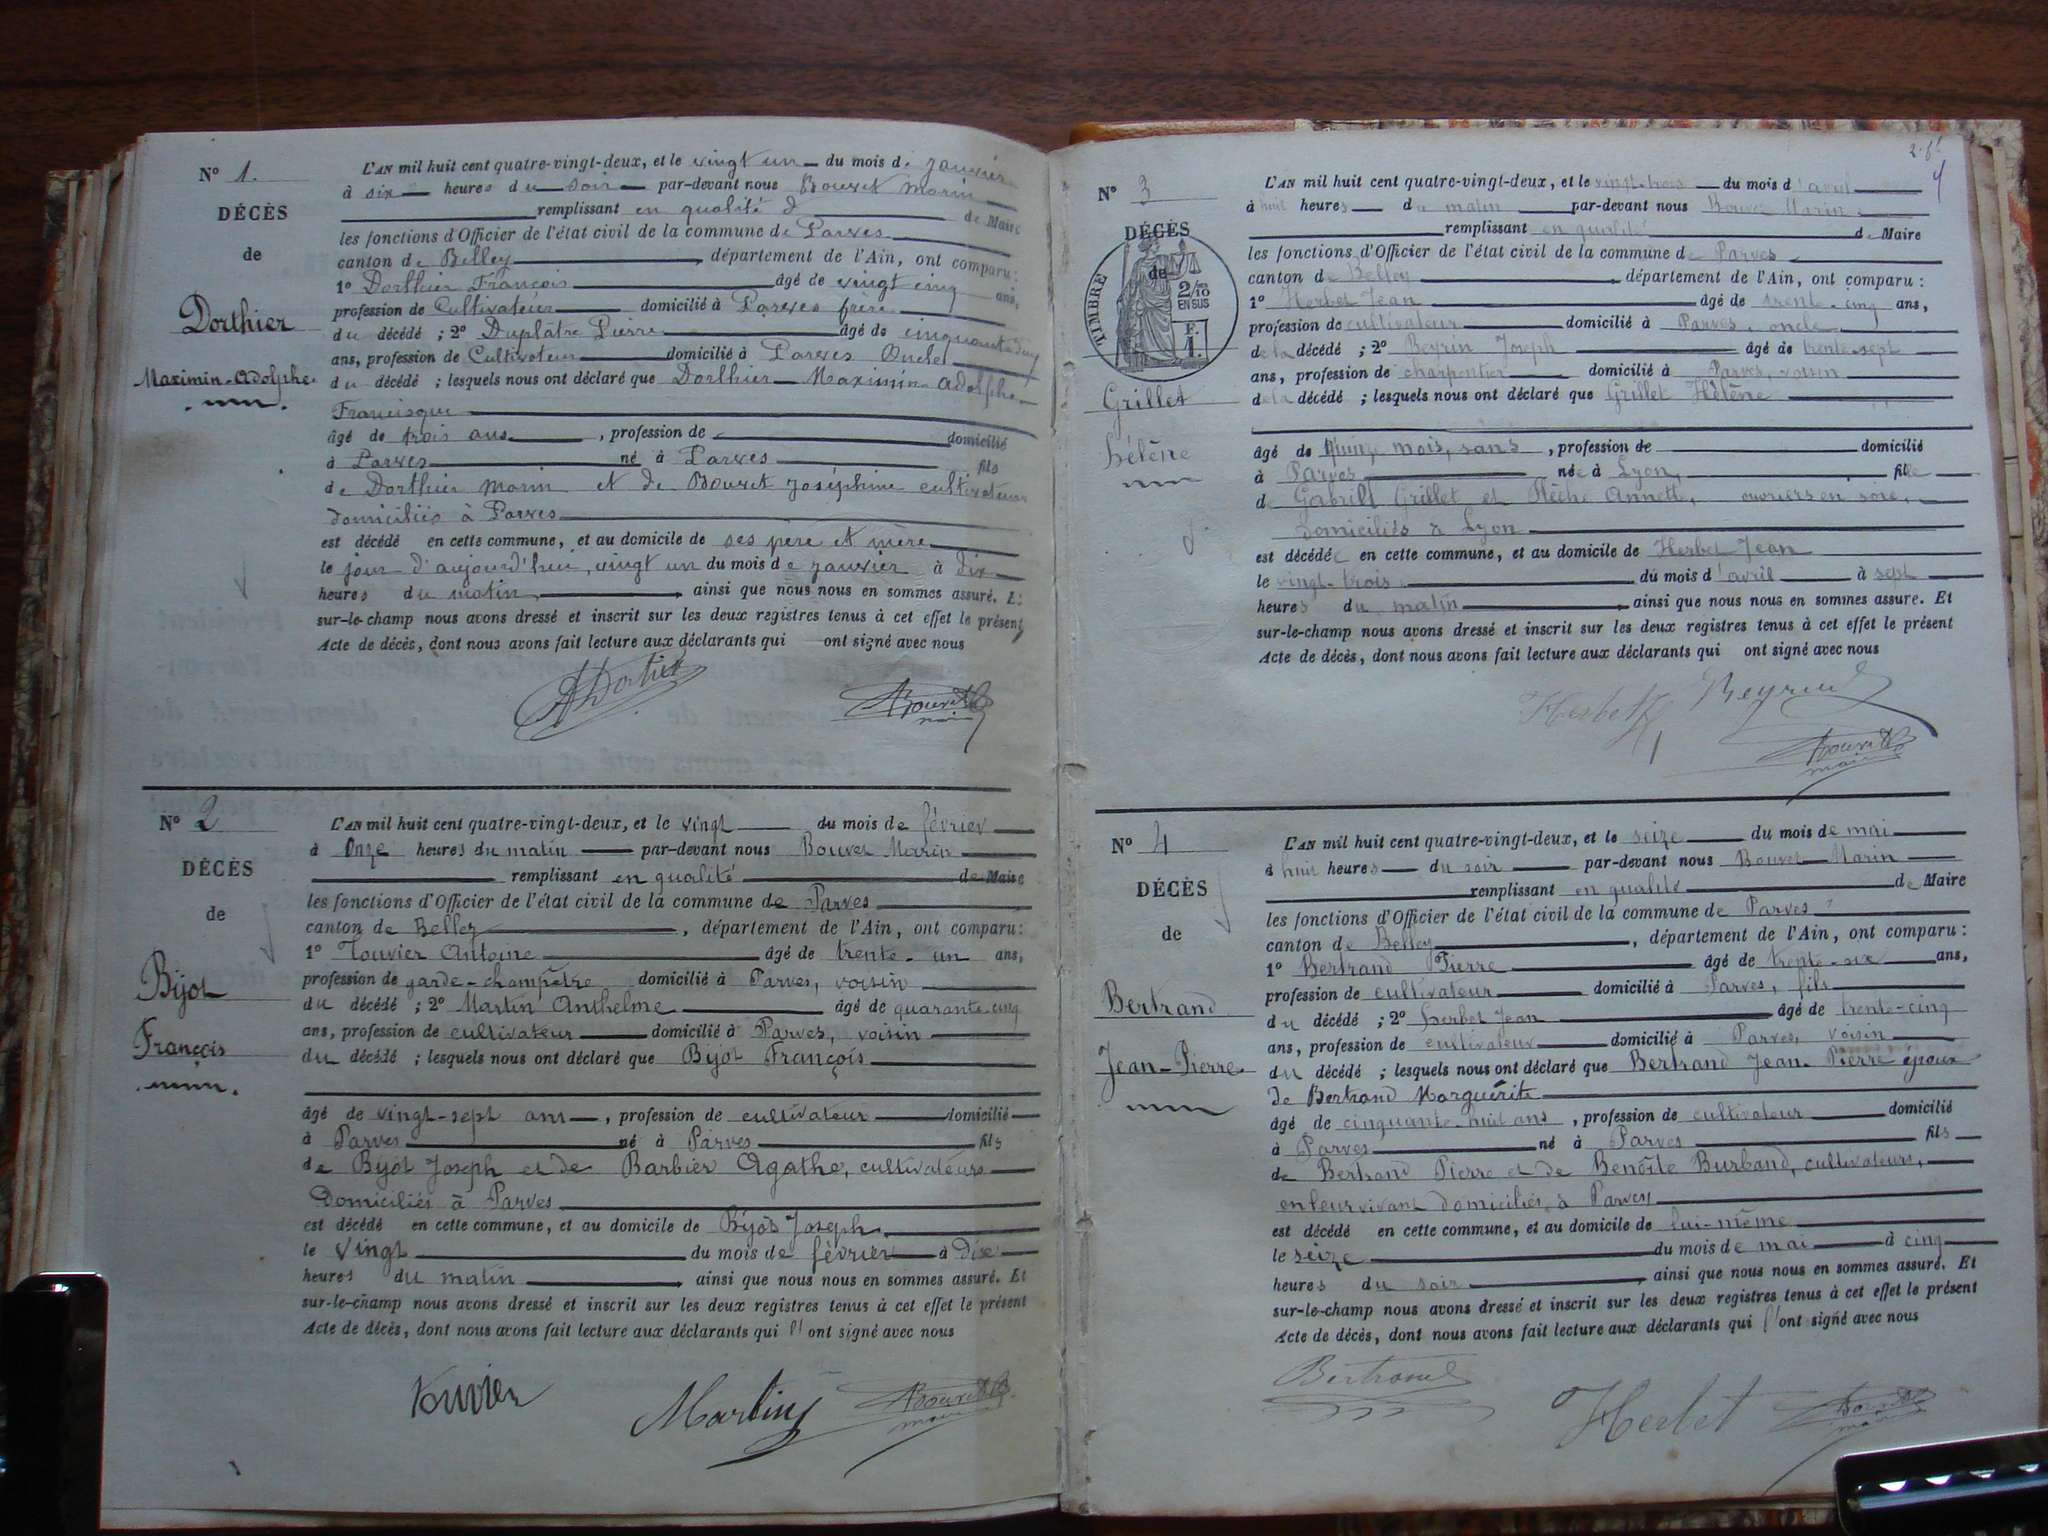 N° 1.
DÉCÈS
de
Dorthier
Maximin-Adolphe.
L'AN mil huit cent quatre-vingt-deux, et le vingt un du mois de janvier
à six heures du soir par-devant nous Bouvet Marin
remplissant en qualité d de Maire
les fonctions d'Officier de l'état civil de la commune de Parves
canton de Belley, département de l'Ain, ont comparu :
1° Dorthier François âgé de vingt cinq ans,
profession de Cultivateur domicilié à Parves frère
du décédé ; 2° Duplâtre Pierre âgé de
ans, profession de Cultivateur domicilié à Parves Oncle
du décédé ; lesquels nous ont déclaré que Dorthier Maximin Adolphe
Francisque
âgé de trois ans, profession de domicilié
à Parves né à Parves fils
de Dorthier Marin et de Bouvet Joséphine cultivateurs
domiciliés à Parves
est décédé en cette commune, et au domicile de ses père et mère
le jour d'aujourd'hui, vingt un du mois de janvier à dix
heures du matin, ainsi que nous nous en sommes assuré. Et
sur-le-champ nous avons dressé et inscrit sur les deux registres tenus à cet effet le présent
Acte de décès, dont nous avons fait lecture aux déclarants qui ont signé avec nous
Dortier
Bouvet
maire
N° 2
DÉCÈS
de
Bijot
François
L'AN mil huit cent quatre-vingt-deux, et le vingt du mois de février
à Onze heures du matin par-devant nous Bouvet Marin
remplissant en qualité de Maire
les fonctions d'Officier de l'état civil de la commune de Parves
canton de Belley, département de l'Ain, ont comparu :
1° Touvier Antoine âgé de trente-un ans,
profession de garde-champêtre domicilié à Parves, voisin
du décédé ; 2° Martin Anthelme âgé de quarante-cinq
ans, profession de cultivateur domicilié à Parves, voisin
du décédé ; lesquels nous ont déclaré que Bijot François
âgé de vingt-sept ans, profession de cultivateur domicilié
à Parves né à Parves fils
de Bijot Joseph et de Barbier Agathe, cultivateurs
Domiciliés à Parves
est décédé en cette commune, et au domicile de Bijot Joseph
le Vingt du mois de février à dix
heures du matin, ainsi que nous nous en sommes assuré. Et
sur-le-champ nous avons dressé et inscrit sur les deux registres tenus à cet effet le présent
Acte de décès, dont nous avons fait lecture aux déclarants qui l'ont signé avec nous
Touvier
Martin
Bouvet
maire
4
N° 3
DÉCÈS
de
TIMBRE
2/10
EN SUS
F.
1.
Grillet
hélène
L'AN mil huit cent quatre-vingt-deux, et le vingt-trois du mois d'avril
à huit heures du matin par-devant nous Bouvet Marin
remplissant en qualité de Maire
les fonctions d'Officier de l'état civil de la commune de Parves
canton de Belley, département de l'Ain, ont comparu :
1° Herbet Jean âgé de trente-cinq ans,
profession de cultivateur domicilié à Parves, oncle
de la décédé ; 2° Beyrin Joseph âgé de trente-sept
ans, profession de charpentier domicilié à Parves, voisin
de la décédé ; lesquels nous ont déclaré que Grillet Hélène
âgé de quinze mois, sans, profession de domicilié
à Parves née à Lyon, fille
de Gabriel Grillet et Flèche Annett, ouvriers en soie,
Domiciliés à Lyon
est décédée en cette commune, et au domicile de Herbet Jean
le vingt-trois du mois d'avril à sept
heures du matin, ainsi que nous nous en sommes assuré. Et
sur-le-champ nous avons dressé et inscrit sur les deux registres tenus à cet effet le présent
Acte de décès, dont nous avons fait lecture aux déclarants qui ont signé avec nous
Herbet
Bouvet
maire
N° 4
DÉCÈS
de
Bertrand
Jean-Pierre
L'AN mil huit cent quatre-vingt-deux, et le seize du mois de mai
à huit heures du soir par-devant nous Bouvet Marin
remplissant en qualité de Maire
les fonctions d'Officier de l'état civil de la commune de Parves
canton de Belley, département de l'Ain, ont comparu :
1° Bertrand Pierre âgé de trente-six ans,
profession de cultivateur domicilié à Parves, fils
du décédé ; 2° herbet Jean âgé de trente-cinq
ans, profession de cultivateur domicilié à Parves, voisin
du décédé ; lesquels nous ont déclaré que Bertrand Jean-Pierre époux
de Bertrand Marguérite
âgé de cinquante-huit ans, profession de cultivateur domicilié
à Parves né à Parves fils
de Bertrand Pierre et de Benoîte Burband, cultivateurs,
en leur vivant domiciliés à Parves
est décédé en cette commune, et au domicile de lui-même
le seize du mois de mai à cinq
heures du soir, ainsi que nous nous en sommes assuré. Et
sur-le-champ nous avons dressé et inscrit sur les deux registres tenus à cet effet le présent
Acte de décès, dont nous avons fait lecture aux déclarants qui l'ont signé avec nous
Bertrand
Herbet
Bouvet
maire